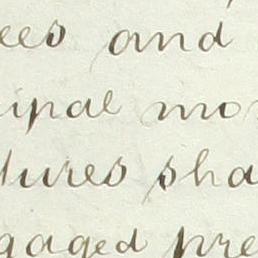 ees and
ipal mo
tures sha
gaged pre